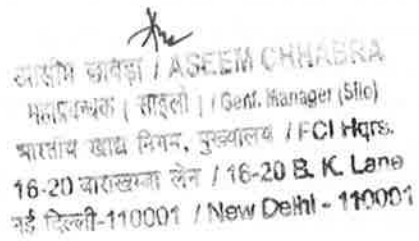 आसीम छाबड़ा / ASEEM CHHABRA
महाप्रबन्धक ( साइलो ) / Genl. Manager (Silo)
भारतीय खाद्य निगम, मुख्यालय / FCI Hqrs.
16-20 बाराखम्बा लेन / 16-20 B. K. Lane
नई दिल्ली-110001 / New Delhi - 110001